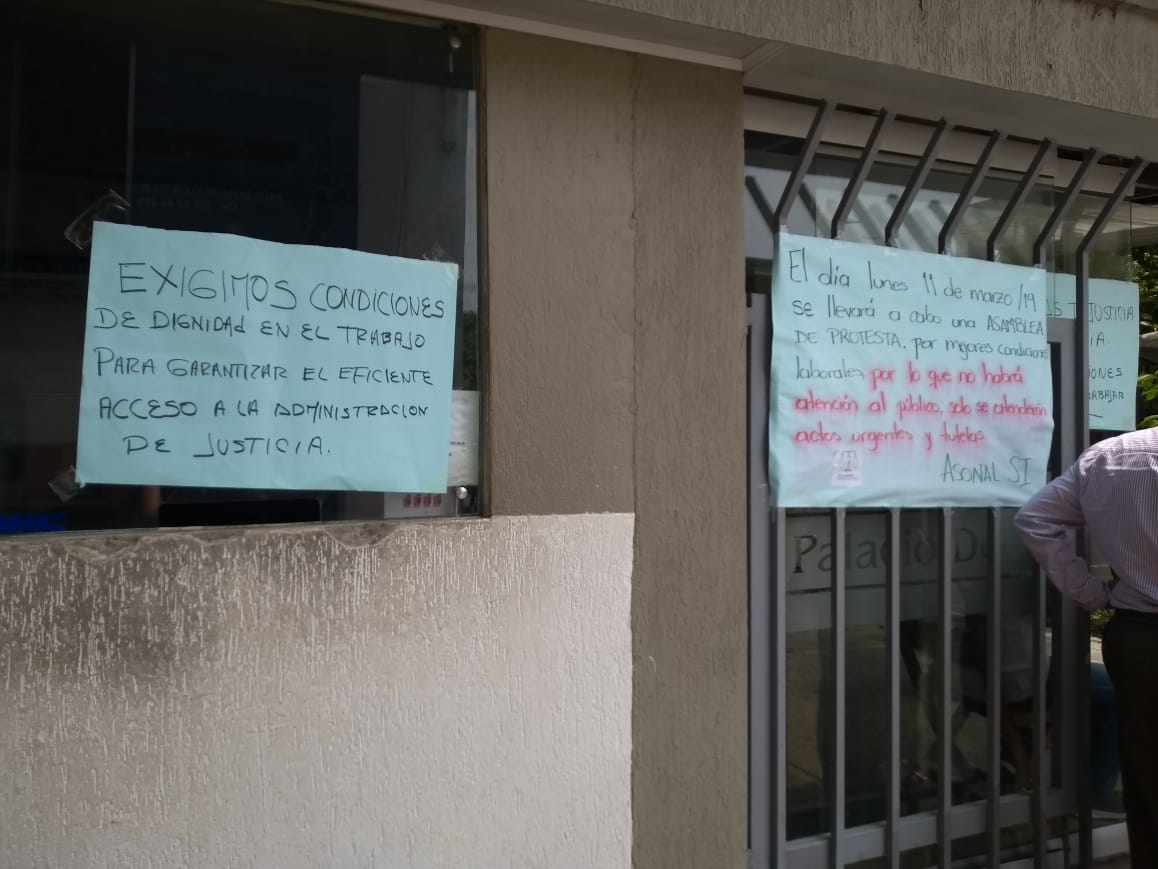 EXIGIMOS CONDICIONES
DE DIGNIDAd EN EL TRABAJO
PARA GARANTIZAR EL EFICIENTE
ACCESO A LA ADMINISTRACION
DE JUSTICIA.
El día lunes 11 de marzo/19
se llevará a cabo una ASAMBLEA
DE PROTESTA, por mejores condiciones
laborales, por lo que no habrá
atención al público, solo se atenderán
actos urgentes y tutelas
ASONAL SI
JUSTICIA
IA.
IONES
ABAJAR
Palacio De